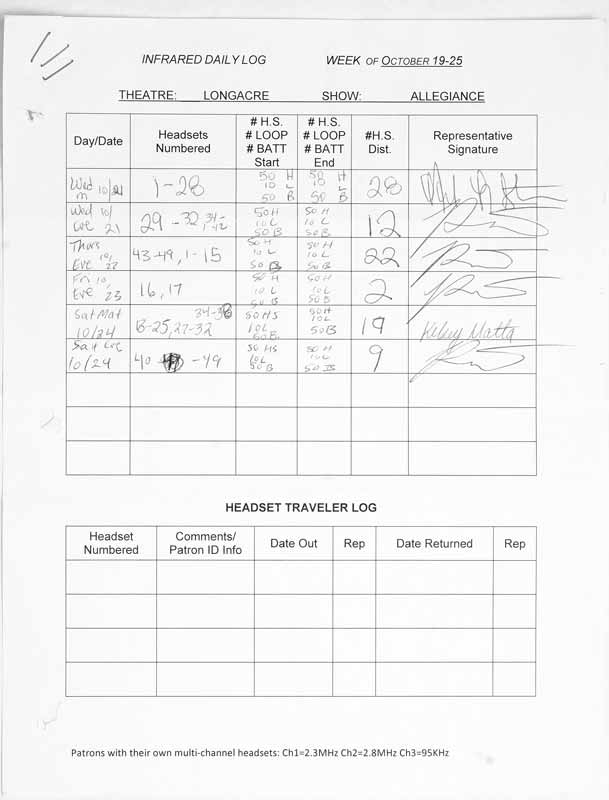 INFRARED DAILY LOG WEEK OF OCTOBER 19-25
THEATRE: LONGACRE SHOW: ALLEGIANCE
Day/Date Headsets Numbered # H.S. # LOOP # BATT Start # H.S. # LOOP # BATT End #H.S. Dist. Representative Signature
Wed m 10/21 1-28 50 H 10 L 50 B 50 H 10 L 50 B 28
Wed 10/21 Eve 29-32, 34-42 50H 10L 50B 50H 10L 50B 12
Thurs Eve 10/22 43-49, 1-15 50 H 10 L 50 B 50H 10L 50B 22
Fri 10/23 Eve 16, 17 50 H 10 L 50 B 50H 10L 50B 2
Sat Mat 10/24 -25, 27-32 34-38 50 HS 10L 50B 50H 10L 50B 19 Kelsey Matta
Sat Eve 10/24 40 -49 50 HS 10L 50B 50 H 10L 50 B 9
HEADSET TRAVELER LOG
Headset Numbered Comments/ Patron ID Info Date Out Rep Date Returned Rep
Patrons with their own multi-channel headsets: Ch1=2.3MHz Ch2=2.8MHz Ch3=95KHz